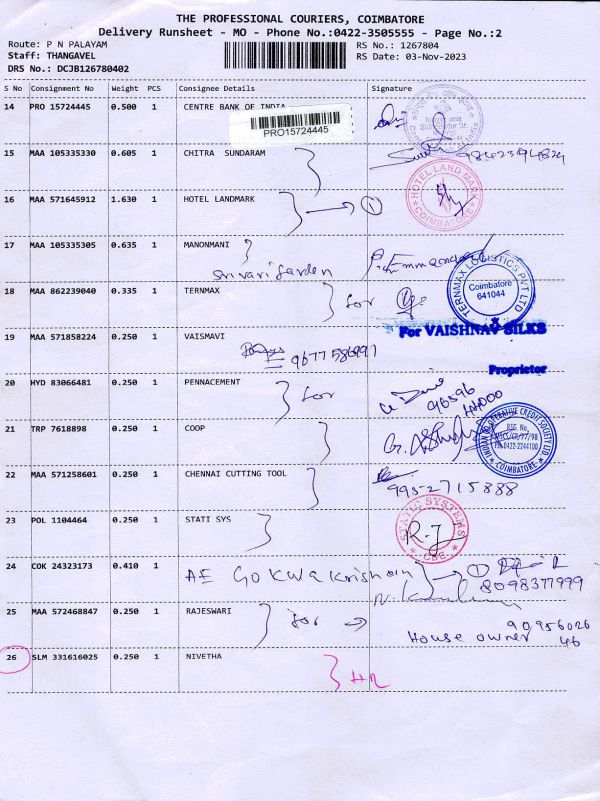 THE PROFESSIONAL COURIERS, COIMBATORE
Delivery Runsheet - MO - Phone No.:0422-3505555 - Page No.:2
Route: P N PALAYAM RS No.: 1267804
Staff: THANGAVEL RS Date: 03-Nov-2023
DRS No.: DCJB126780402
S No Consignment No Weight PCS Consignee Details Signature
14 PRO 15724445 0.500 1 CENTRE BANK OF INDIA
PRO15724445
15 MAA 105335330 0.605 1 CHITRA SUNDARAM
16 MAA 571645912 1.630 1 HOTEL LANDMARK 1
HOTEL LAND MARK COIMBATORE
17 MAA 105335305 0.635 1 MANONMANI
Srivari Garden
18 MAA 862239040 0.335 1 TERNMAX for
TERNMAX LOGISTICS PVT LTD
Coimbatore
641044
For VAISHNAV SILKS
19 MAA 571858224 0.250 1 VAISMAVI
Proprietor
20 HYD 83066481 0.250 1 PENNACEMENT for
96596
44000
21 TRP 7618898 0.250 1 COOP
CREDIT SOCIETY LTD
REG. No.
COIMBATORE
22 MAA 571258601 0.250 1 CHENNAI CUTTING TOOL
99527 15888
23 POL 1104464 0.250 1 STATI SYS
STATIC SYSTEMS CBE
R.J
24 COK 24323173 0.410 1 AE Gokula Krishnan 1
8098377999
25 MAA 572468847 0.250 1 RAJESWARI for
90956026
46
House owner
26 SLM 331616025 0.250 1 NIVETHA